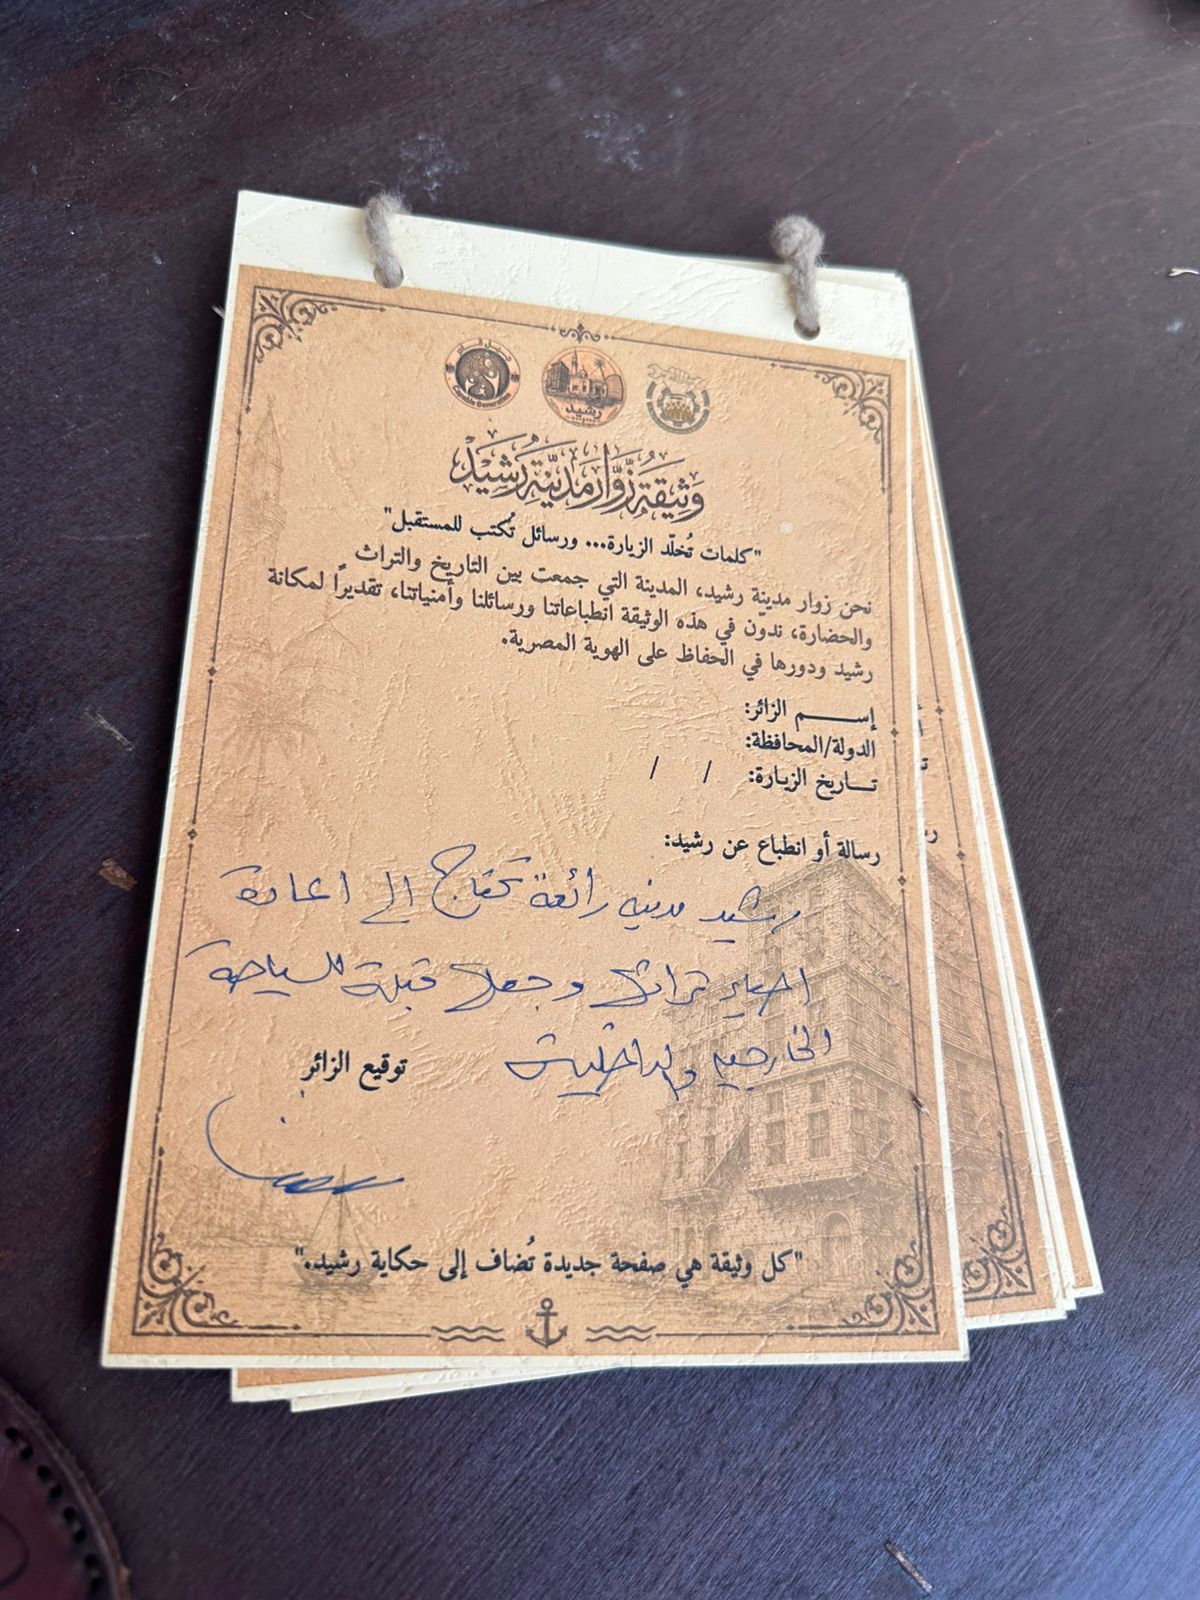 جيل قادر
Capable Generation
رشيد
وَثِيقَةُ زُوَّارِ مَدِينَةِ رَشِيدْ
"كلمات تُخلّد الزيارة... ورسائل تُكتب للمستقبل"
نحن زوار مدينة رشيد، المدينة التي جمعت بين التاريخ والتراث
والحضارة، ندوّن في هذه الوثيقة انطباعاتنا ورسائلنا وأمنياتنا، تقديرًا لمكانة
رشيد ودورها في الحفاظ على الهوية المصرية.
إســـــم الزائر:
الدولة/المحافظة:
تـــاريخ الزيارة: / /
رسالة أو انطباع عن رشيد:
رشيد مدينه رائعة تحتاج الى اعادة
احياء تراثها وجعلها قبلة للسياحة
الخارجيه والداخلية
توقيع الزائر
"كل وثيقة هي صفحة جديدة تُضاف إلى حكاية رشيد."